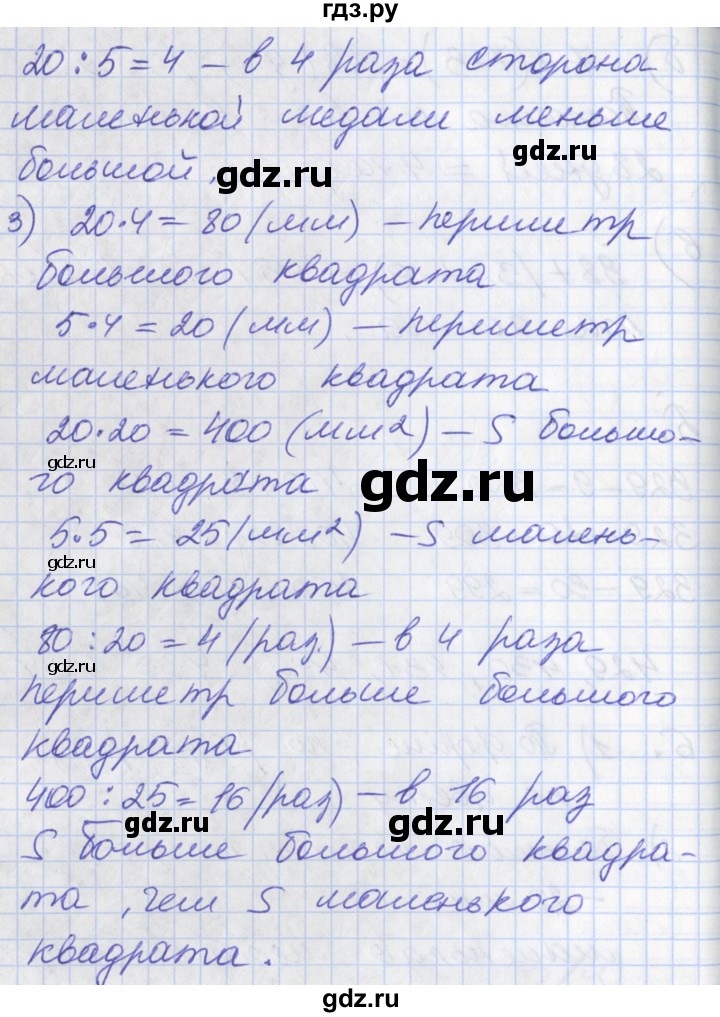 гдз.ру
20 : 5 = 4 – в 4 раза сторона
маленькой медали меньше
gdz.ru
большой,
gdz.ru
3) 20·4 = 80 (мм) – периметр
большого квадрата
5·4 = 20 (мм) – периметр
маленького квадрата
20·20 = 400 (мм2) – S большо-
gdz.ru
го квадрата
gdz.ru
5·5 = 25 (мм2) – S малень-
gdz.ru
кого квадрата
80 : 20 = 4 (раз.) – в 4 раза
gdz.ru
периметр больше большого
квадрата
400 : 25 = 16 (раз) – в 16 раз
gdz.ru
gdz.ru
S больше большого квадра-
та, чем S маленького
квадрата.
gdz.ru